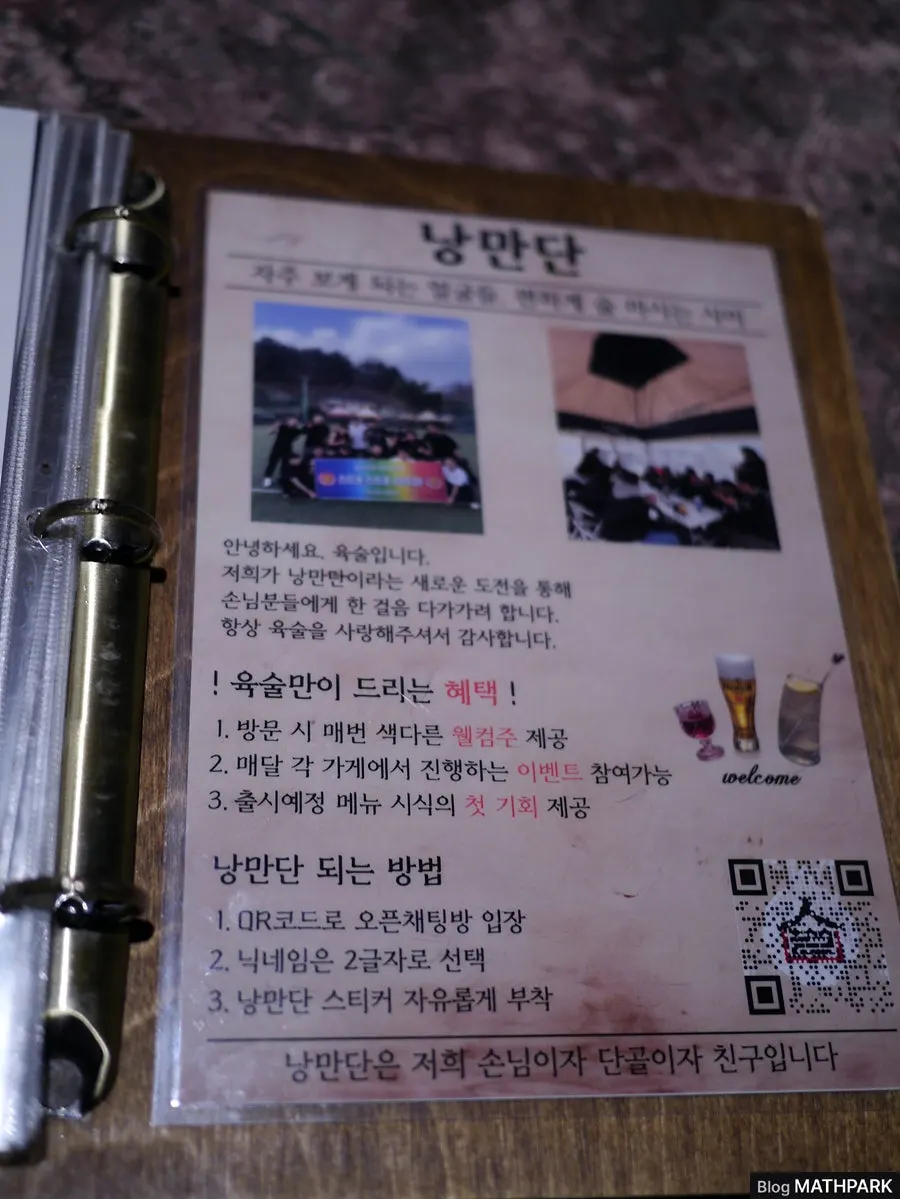 낭만단
자주 보게 되는 얼굴들, 편하게 술 마시는 사이
안녕하세요, 육술입니다.
저희가 낭만만이라는 새로운 도전을 통해
손님분들에게 한 걸음 다가가려 합니다.
항상 육술을 사랑해주셔서 감사합니다.
! 육술만이 드리는 혜택 !
1. 방문 시 매번 색다른 웰컴주 제공
2. 매달 각 가게에서 진행하는 이벤트 참여가능
3. 출시예정 메뉴 시식의 첫 기회 제공
welcome
낭만단 되는 방법
1. QR코드로 오픈채팅방 입장
2. 닉네임은 2글자로 선택
3. 낭만단 스티커 자유롭게 부착
낭만단은 저희 손님이자 단골이자 친구입니다
Blog MATHPARK